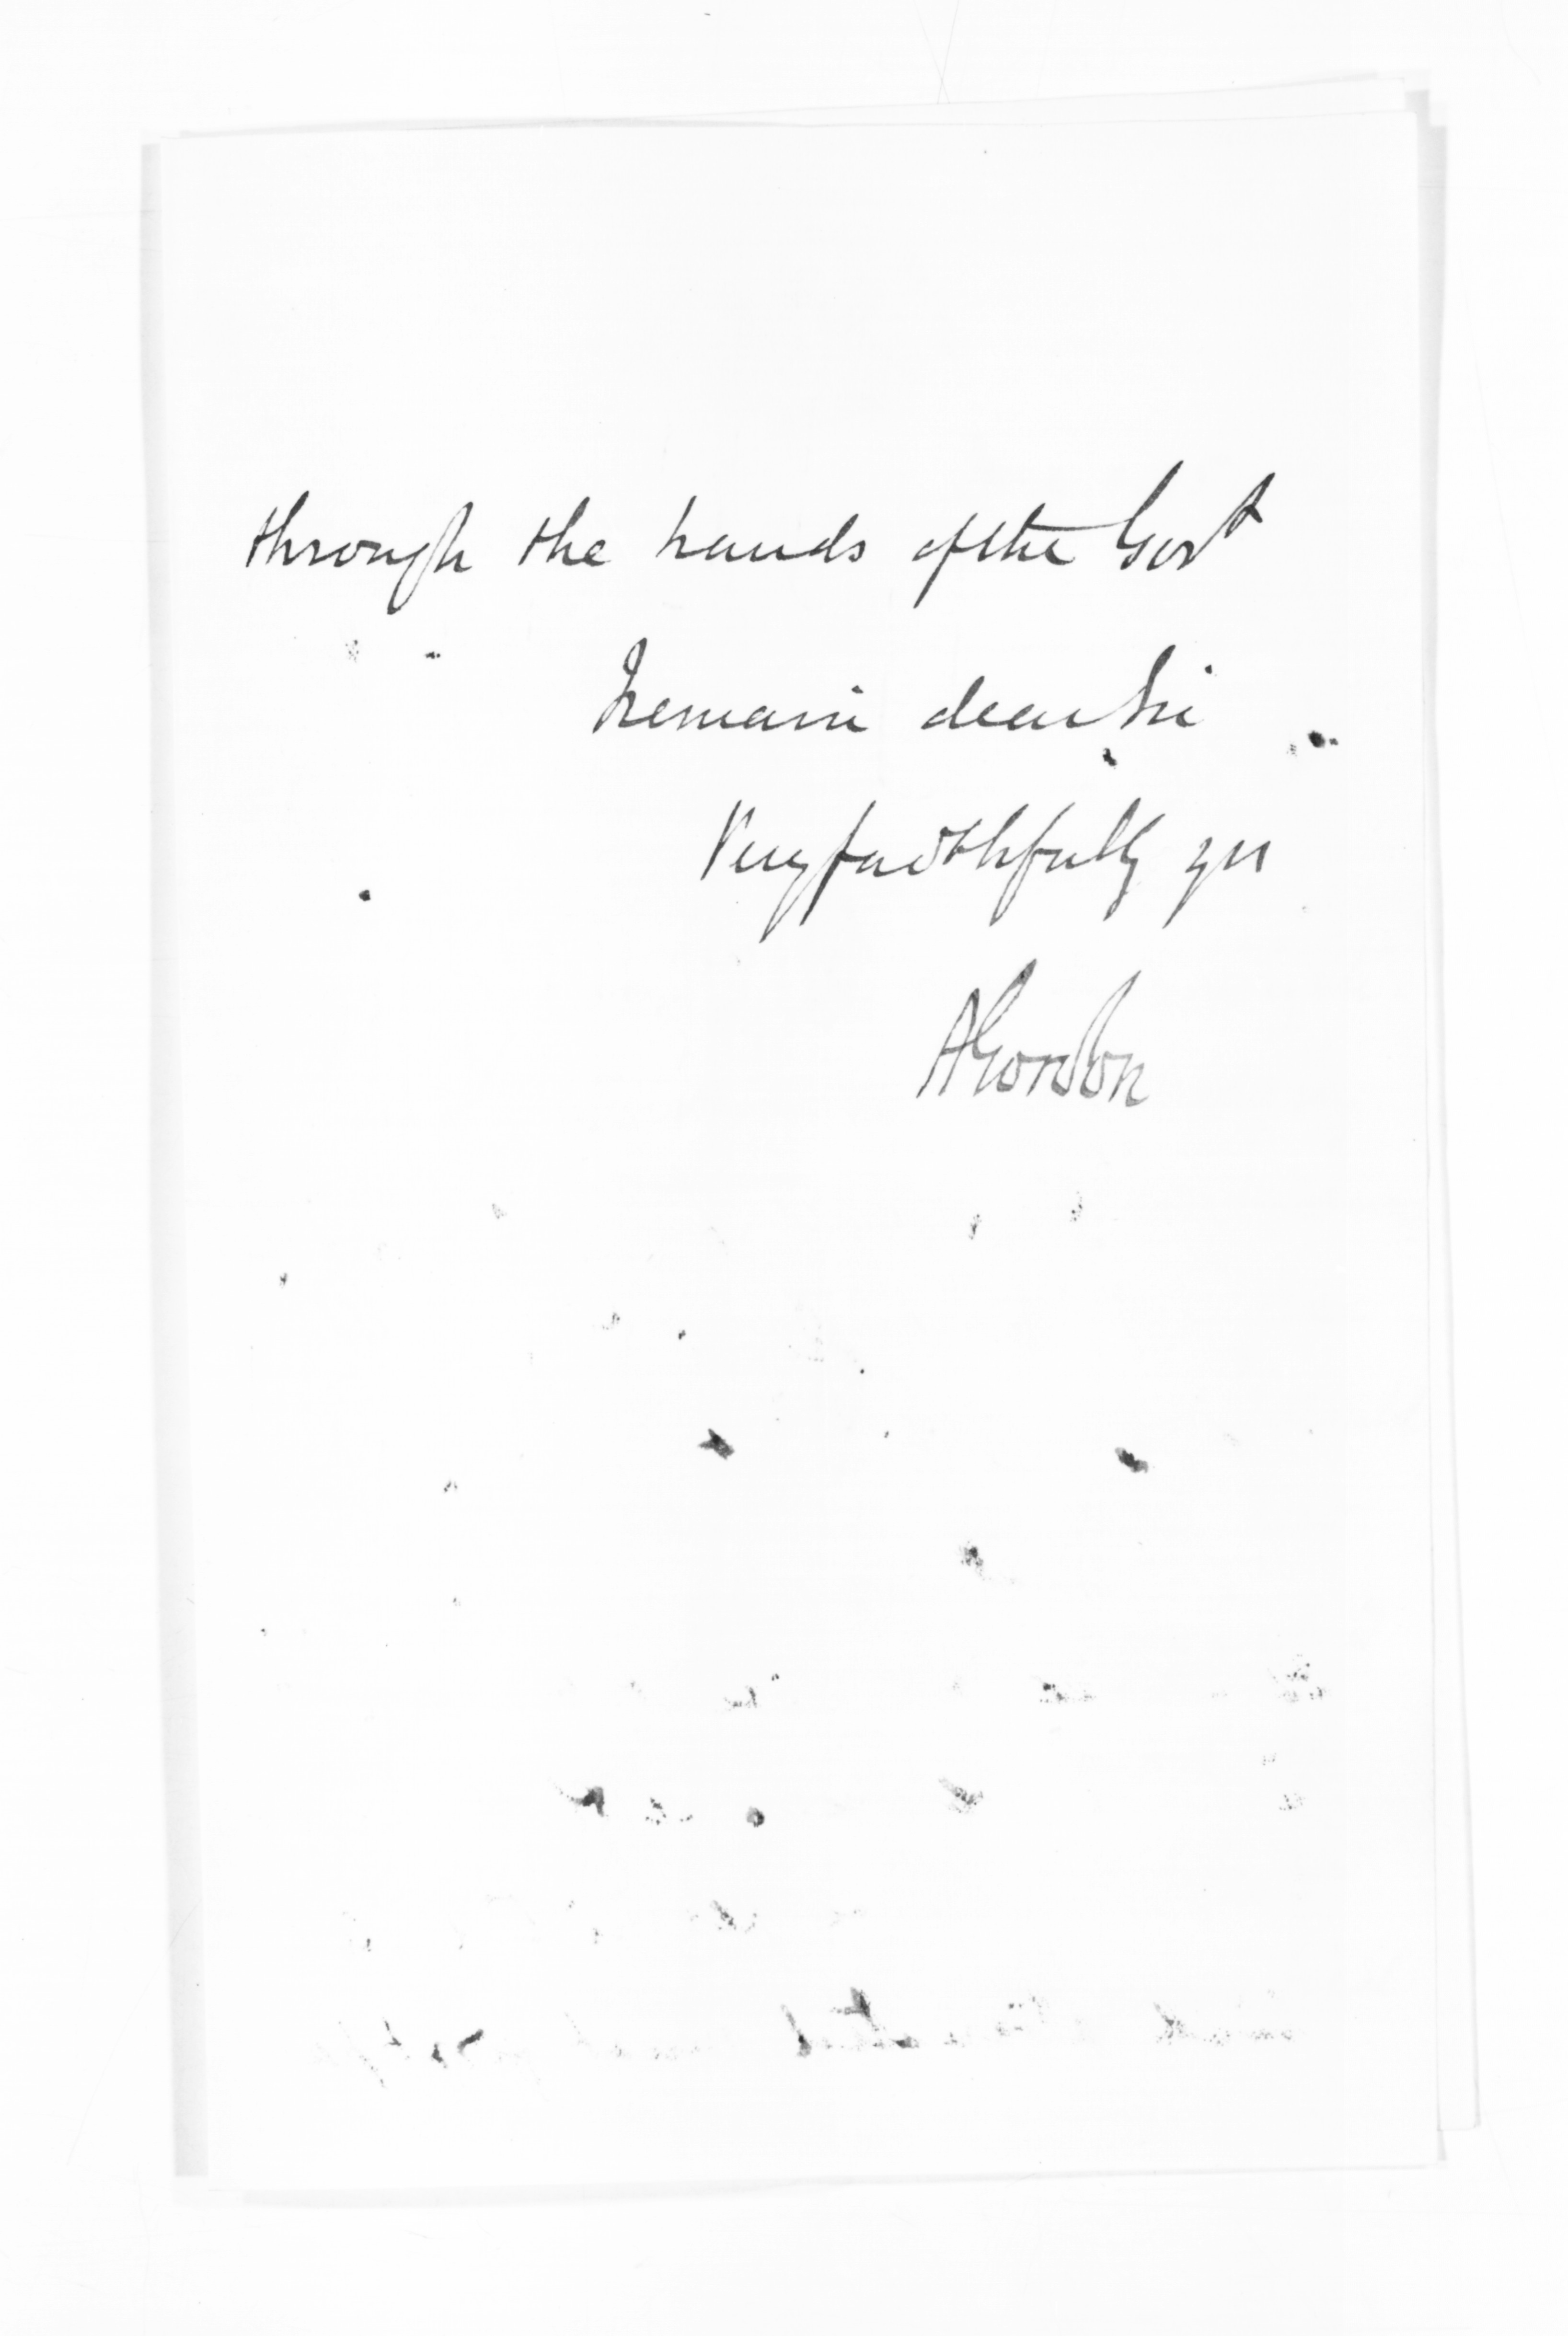 through the hands of the Govt
I remain dear Sir
Very faithfully yrs
AGordon